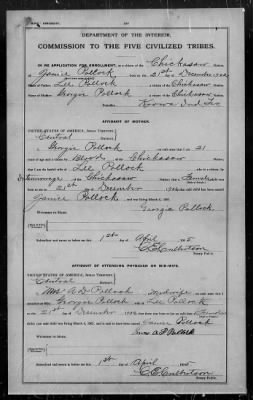 DEPARTMENT OF THE INTERIOR.
COMMISSION TO THE FIVE CIVILIZED TRIBES.
IN RE APPLICATION FOR ENROLLMENT, as a citizen of the Chickasaw Nation,
of Janice Pollock, born on the 21st day of December, 190
Name of Father: Lee Pollock a citizen of the Chickasaw Nation.
Name of Mother: Georgie Pollock a citizen of the Chickasaw Nation.
Postoffice Kiowa Ind Ter
AFFIDAVIT OF MOTHER.
UNITED STATES OF AMERICA, INDIAN TERRITORY,
Central
I, Georgie Pollock, on oath state that I am 21
years of age and a citizen by Blood, of the Chickasaw Nation,
that I am the lawful wife of Lee Pollock, who is a citizen, by
Intermarriage of the Chickasaw Nation, that a Female child was
born to me on 21st day of December
Janice Pollock, and was living March 4, 1905.
Georgie Pollock
WITNESSES TO MARK:
Subscribed and sworn to before me this 1st day of April, 1905
C E Culbertson
Notary Public.
AFFIDAVIT OF ATTENDING PHYSICIAN OR MID-WIFE.
UNITED STATES OF AMERICA, INDIAN TERRITORY,
Central
I, Mrs A D Pollock, a Midwife, on oath state that I
attended on Mrs. Georgie Pollock, wife of Lee Pollock
on the 21st day of December, 190 ; that there was born to her on said date a Female
child; that said child was living March 4, 1905, and is said to have been named Janice Pollock
Mrs A D Pollock
WITNESSES TO MARK:
Subscribed and sworn to before me this 1st day of April, 1905
C E Culbertson
Notary Public.